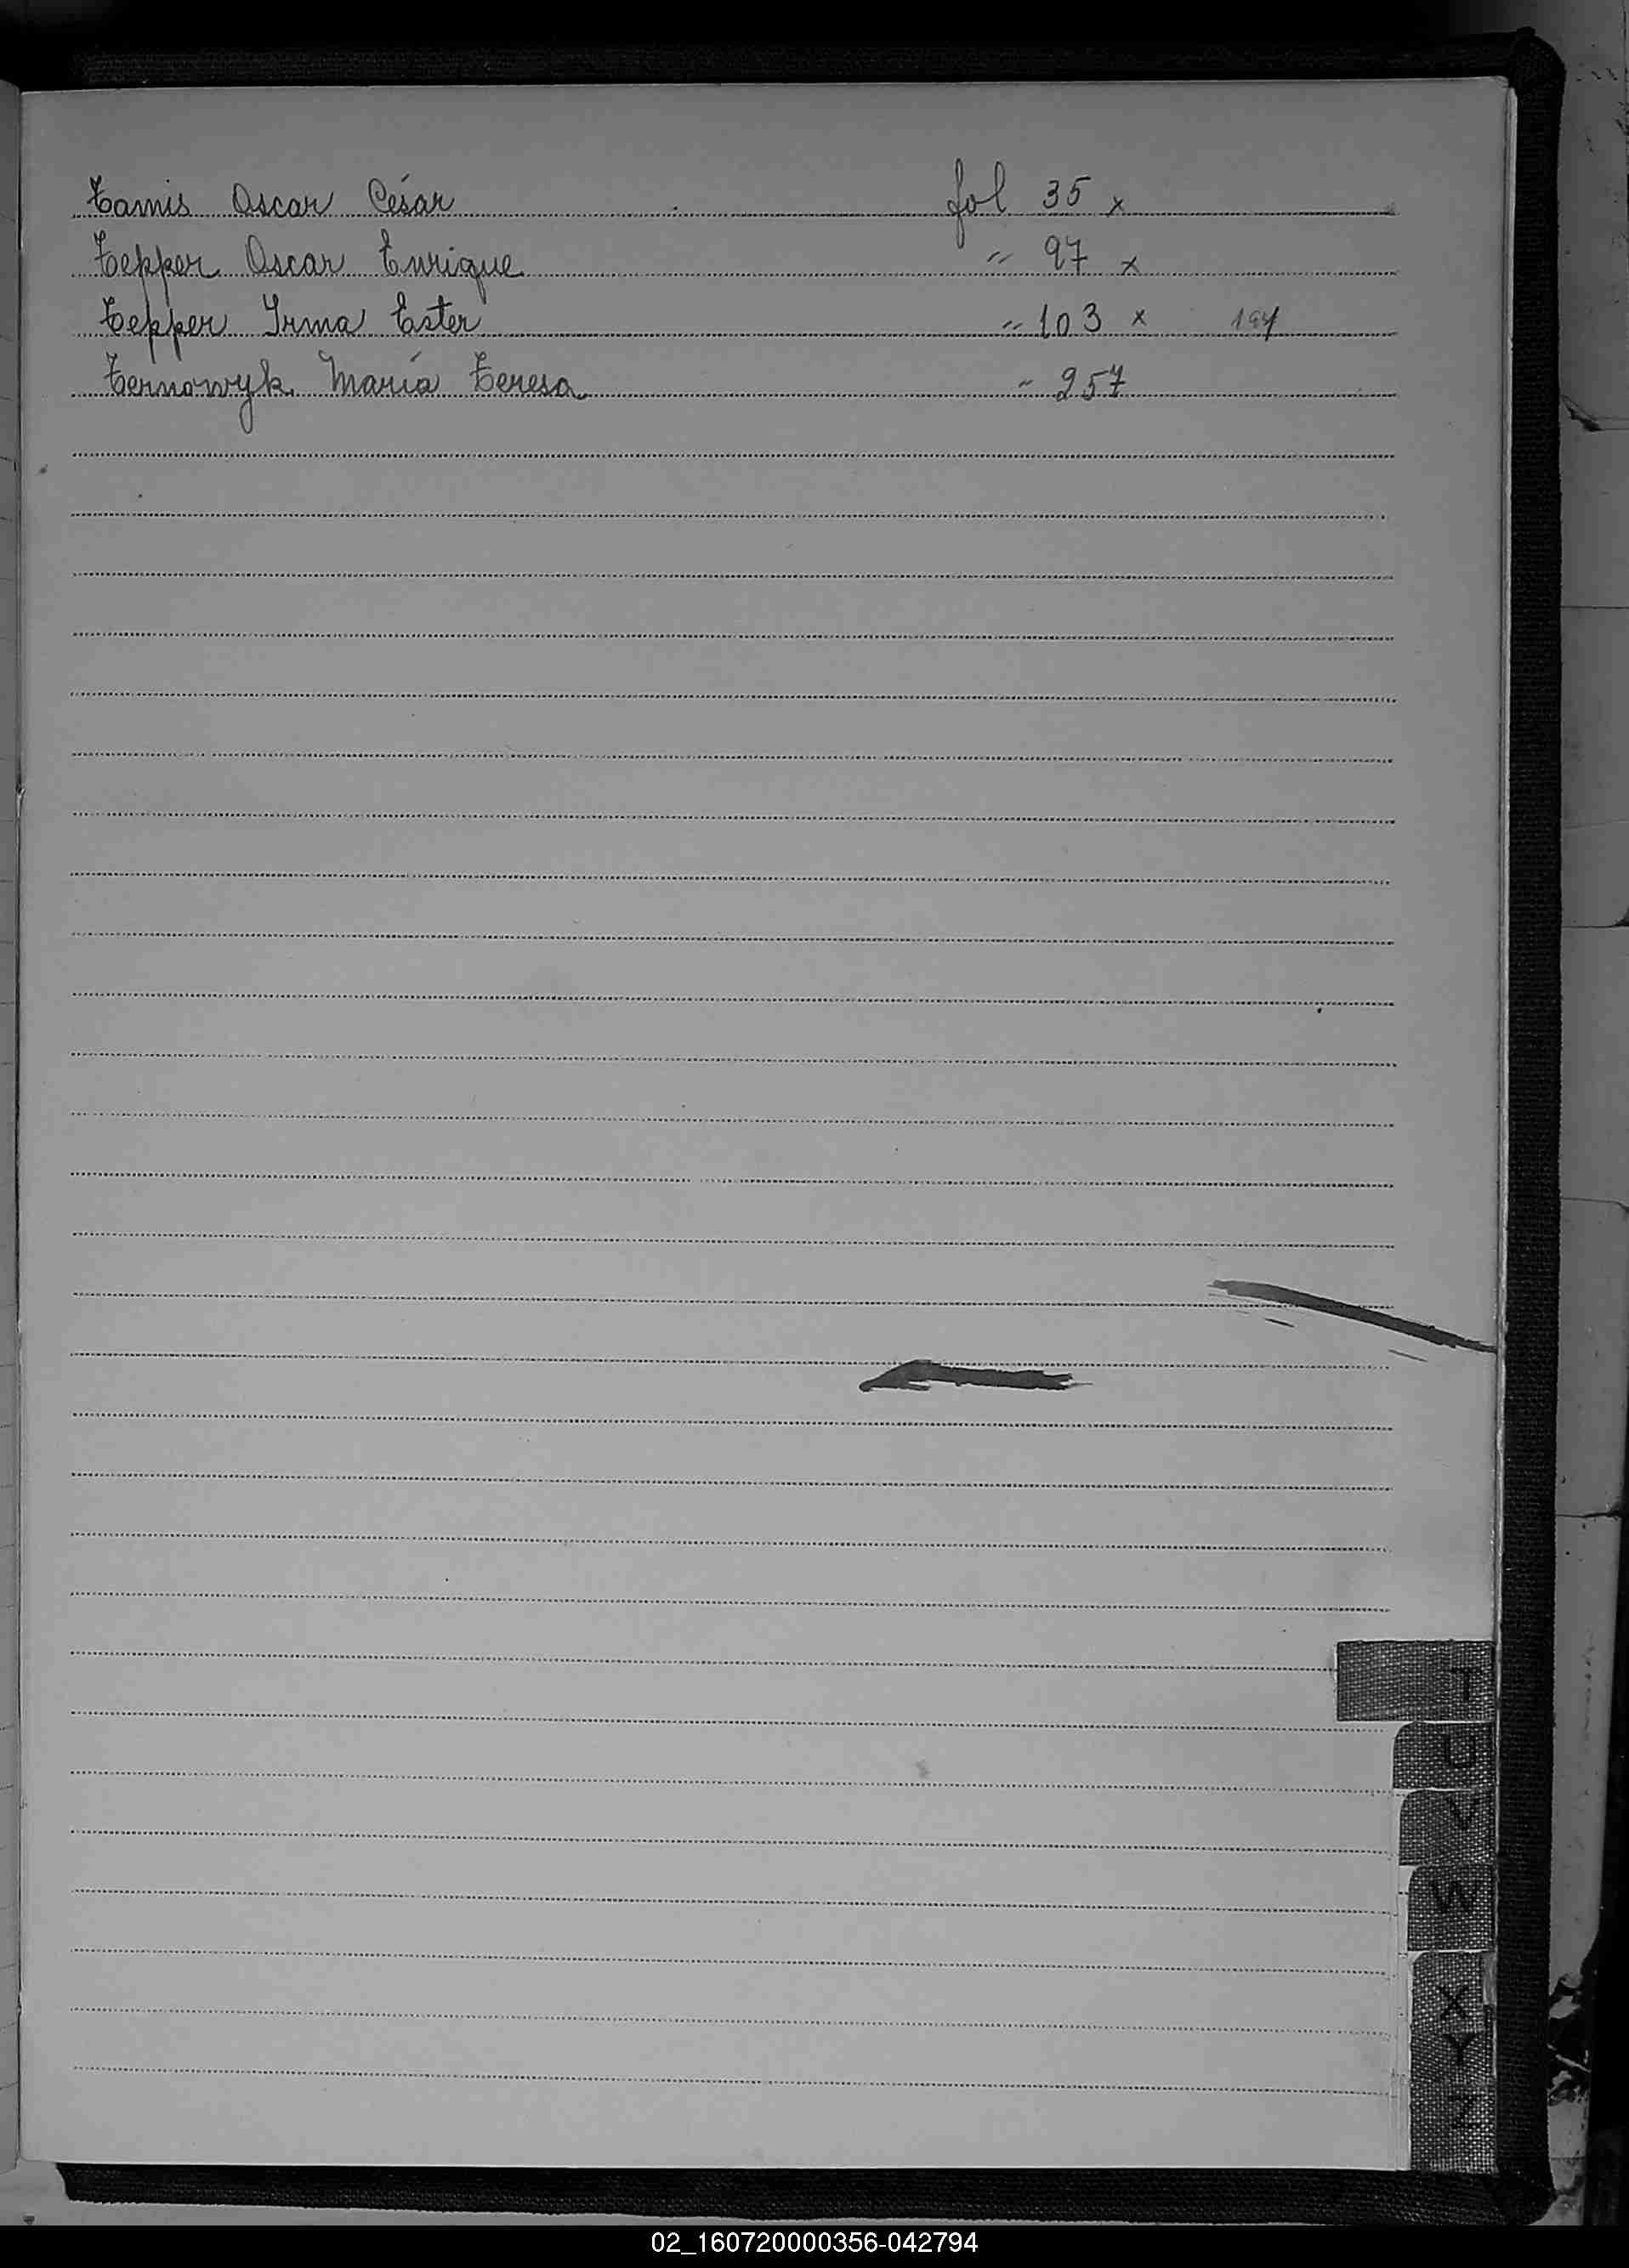 Tamis Oscar César fol 35 x
Tepper Oscar Enrique " 97 x
Tepper Irma Ester " 103 x
Ternowyk María Teresa " 257
T
U
V
W
X
Y
Z
02_160720000356-042794